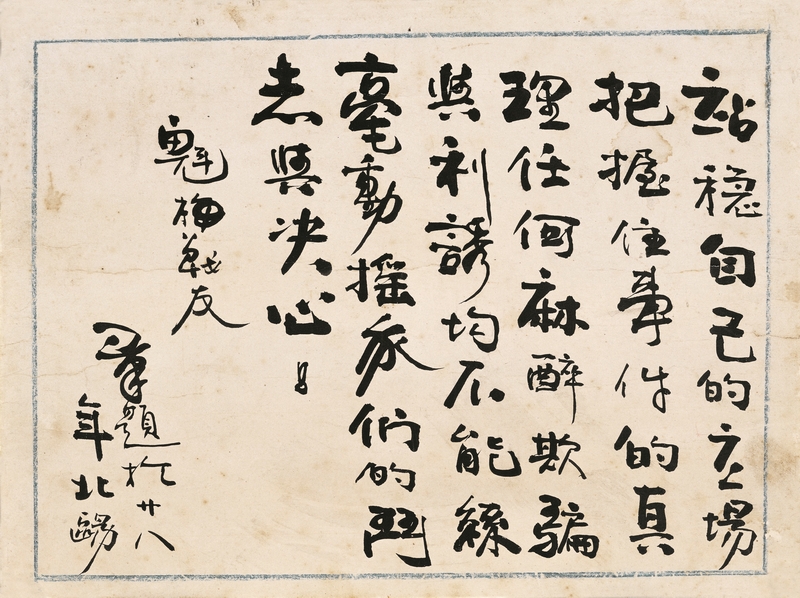 站穩自己的立場
把握住事件的真
理任何麻醉欺騙
與利誘均不能絲
毫動搖我們的鬥
志與决心!
魁梅戰友
題於廿八
年北鷗